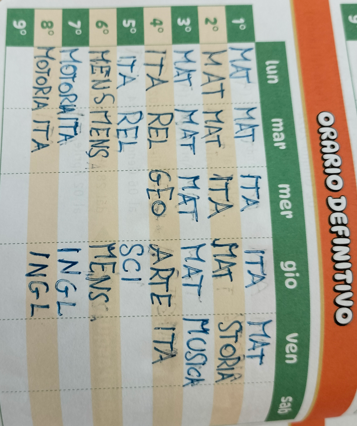 ORARIO DEFINITIVO
lun mar mer gio ven sab
1° MAT MAT ITA ITA MAT
2° MAT MAT ITA MAT STORIA
3° MAT MAT MAT MAT MUSICA
4° ITA REL GEO ARTE ITA
5° ITA REL SCI
6° MENS MENS MENS
7° MOTORIA ITA INGL
8° MOTORIA ITA INGL
9°